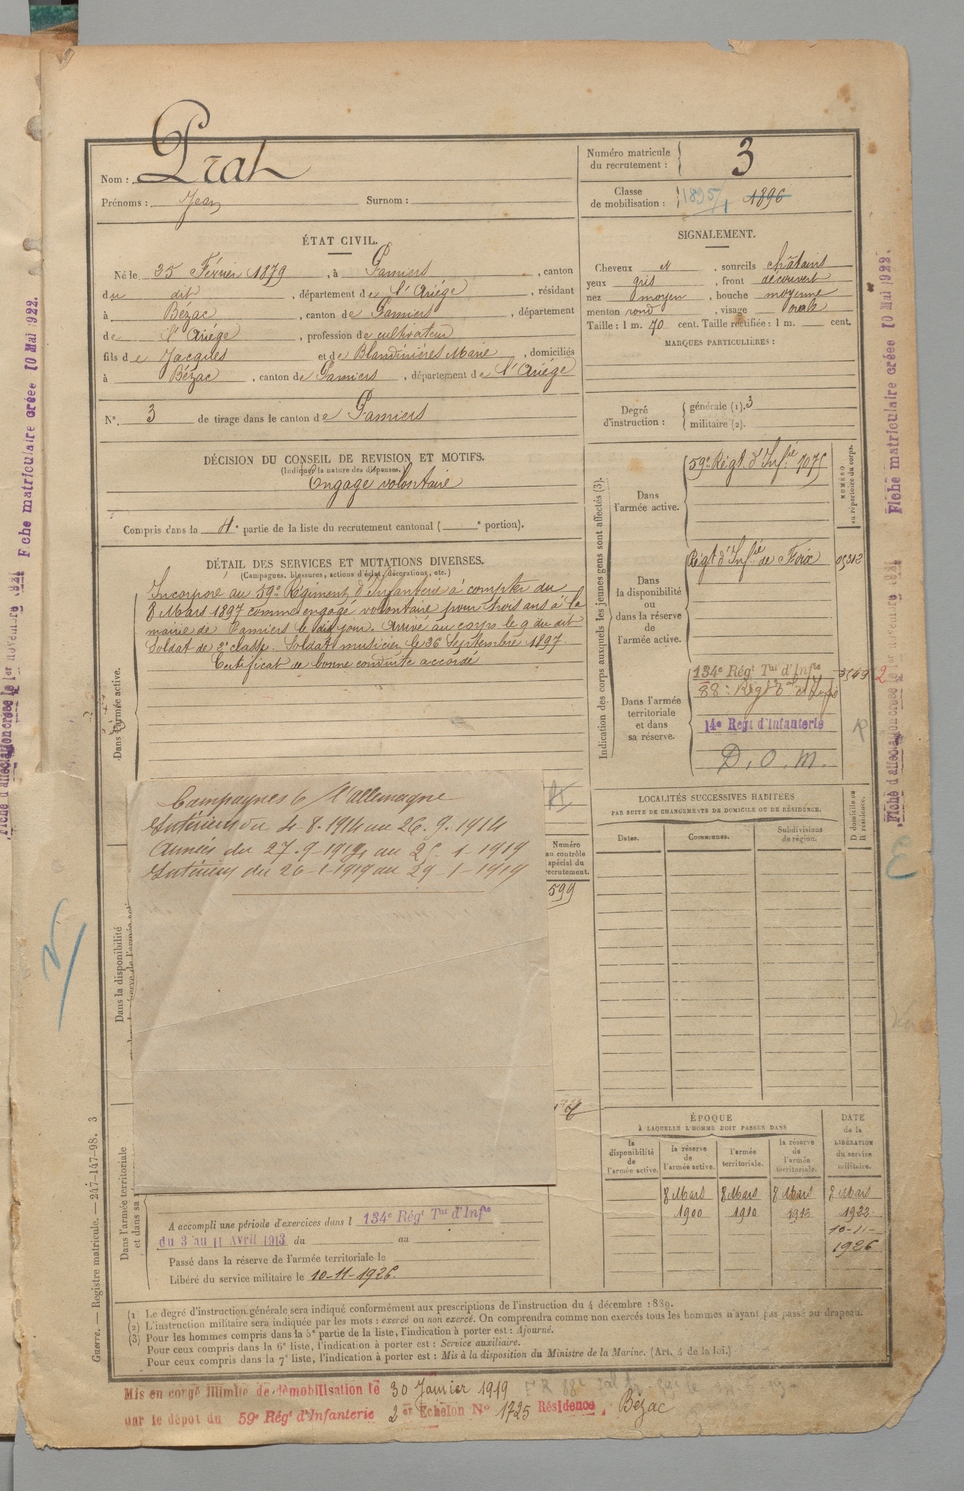 Nom : Prat
Prénoms : Jean Surnom :
Numéro matricule du recrutement : 3
Classe de mobilisation : 1895/1 1896
ÉTAT CIVIL.
Né le 25 Février 1879, à Pamiers, canton
du dit, département de l'Ariège, résidant
à Bézac, canton de Pamiers, département
de l'Ariège, profession de cultivateur
fils de Jacques et de Blandinières Marie, domiciliés
à Bézac, canton de Pamiers, département de l'Ariège
N° 3 de tirage dans le canton de Pamiers
SIGNALEMENT.
Cheveux et, sourcils châtains
yeux gris, front découvert
nez moyen, bouche moyenne
menton rond, visage ovale
Taille : 1 m. 70 cent. Taille rectifiée : 1 m. cent.
MARQUES PARTICULIÈRES :
Degré d'instruction : générale (1). 3
militaire (2).
DÉCISION DU CONSEIL DE REVISION ET MOTIFS.
(Indiquer la nature des dispenses.)
Engagé volontaire
Compris dans la 4e partie de la liste du recrutement cantonal ( e portion).
DÉTAIL DES SERVICES ET MUTATIONS DIVERSES.
(Campagnes, blessures, actions d'éclat, décorations, etc.)
Incorporé au 59e Régiment d'Infanterie à compter du
8 Mars 1897 comme engagé volontaire pour trois ans à la
mairie de Pamiers le dit jour. Arrivé au corps le 9 du dit
Soldat de 2e classe. Soldat musicien le 26 Septembre 1897
Certificat de bonne conduite accordé
Dans l'armée active.
Campagnes c/ l'Allemagne
Intérieur du 4-8-1914 au 26-9-1914
Armées du 27-9-1914 au 25-1-1919
Intérieur du 26-1-1919 au 29-1-1919
Dans la disponibilité
Dans l'armée territoriale
et dans sa
A accompli une période d'exercices dans l 134e Régt Tal d'Infie
du 3 au 11 Avril 1913 du au
Passé dans la réserve de l'armée territoriale le
Libéré du service militaire le 10-11-1926.
Numéro au contrôle spécial du recrutement.
599
Indication des corps auxquels les jeunes gens sont affectés (3).
NUMÉRO au répertoire du corps.
Dans l'armée active.
59e Régt d'Infie 1075
Dans la disponibilité ou dans la réserve de l'armée active.
Régt d'Infie de Foix 05312
Dans l'armée territoriale et dans sa réserve.
134e Régt Tal d'Infie
88e Régt
14e Regt d'Infanterie
D. O. M.
R
LOCALITÉS SUCCESSIVES HABITÉES
PAR SUITE DE CHANGEMENTS DE DOMICILE OU DE RÉSIDENCE.
D domicile ou R résidence.
Dates. Communes. Subdivisions de région.
ÉPOQUE
À LAQUELLE L'HOMME DOIT PASSER DANS
DATE de la LIBÉRATION du service militaire.
la disponibilité de l'armée active. la réserve de l'armée active. l'armée territoriale. la réserve de l'armée territoriale.
8 Mars 8 Mars 8 Mars 8 Mars
1900 1910 1916 1922
10-11-
1926
(1) Le degré d'instruction générale sera indiqué conformément aux prescriptions de l'instruction du 4 décembre 1889.
(2) L'instruction militaire sera indiquée par les mots : exercé ou non exercé. On comprendra comme non exercés tous les hommes n'ayant pas passé au drapeau.
(3) Pour les hommes compris dans la 5e partie de la liste, l'indication à porter est : Ajourné.
Pour ceux compris dans la 6e liste, l'indication à porter est : Service auxiliaire.
Pour ceux compris dans la 7e liste, l'indication à porter est : Mis à la disposition du Ministre de la Marine. (Art. 4 de la loi.)
Mis en congé illimité de démobilisation le 30 Janvier 1919
par le dépôt du 59e Régt d'Infanterie 2er Echelon N° 1725 Résidence, Bézac
Guerre. — Registre matricule. — 247-147-98. 3
Fiche matriculaire créée 10 Mai 1922.
Fiche d'affectation créée le 1er novembre 1921
Fiche matriculaire créée 10 Mai 1922.
Fiche d'affectation créée le 1er novembre 1921